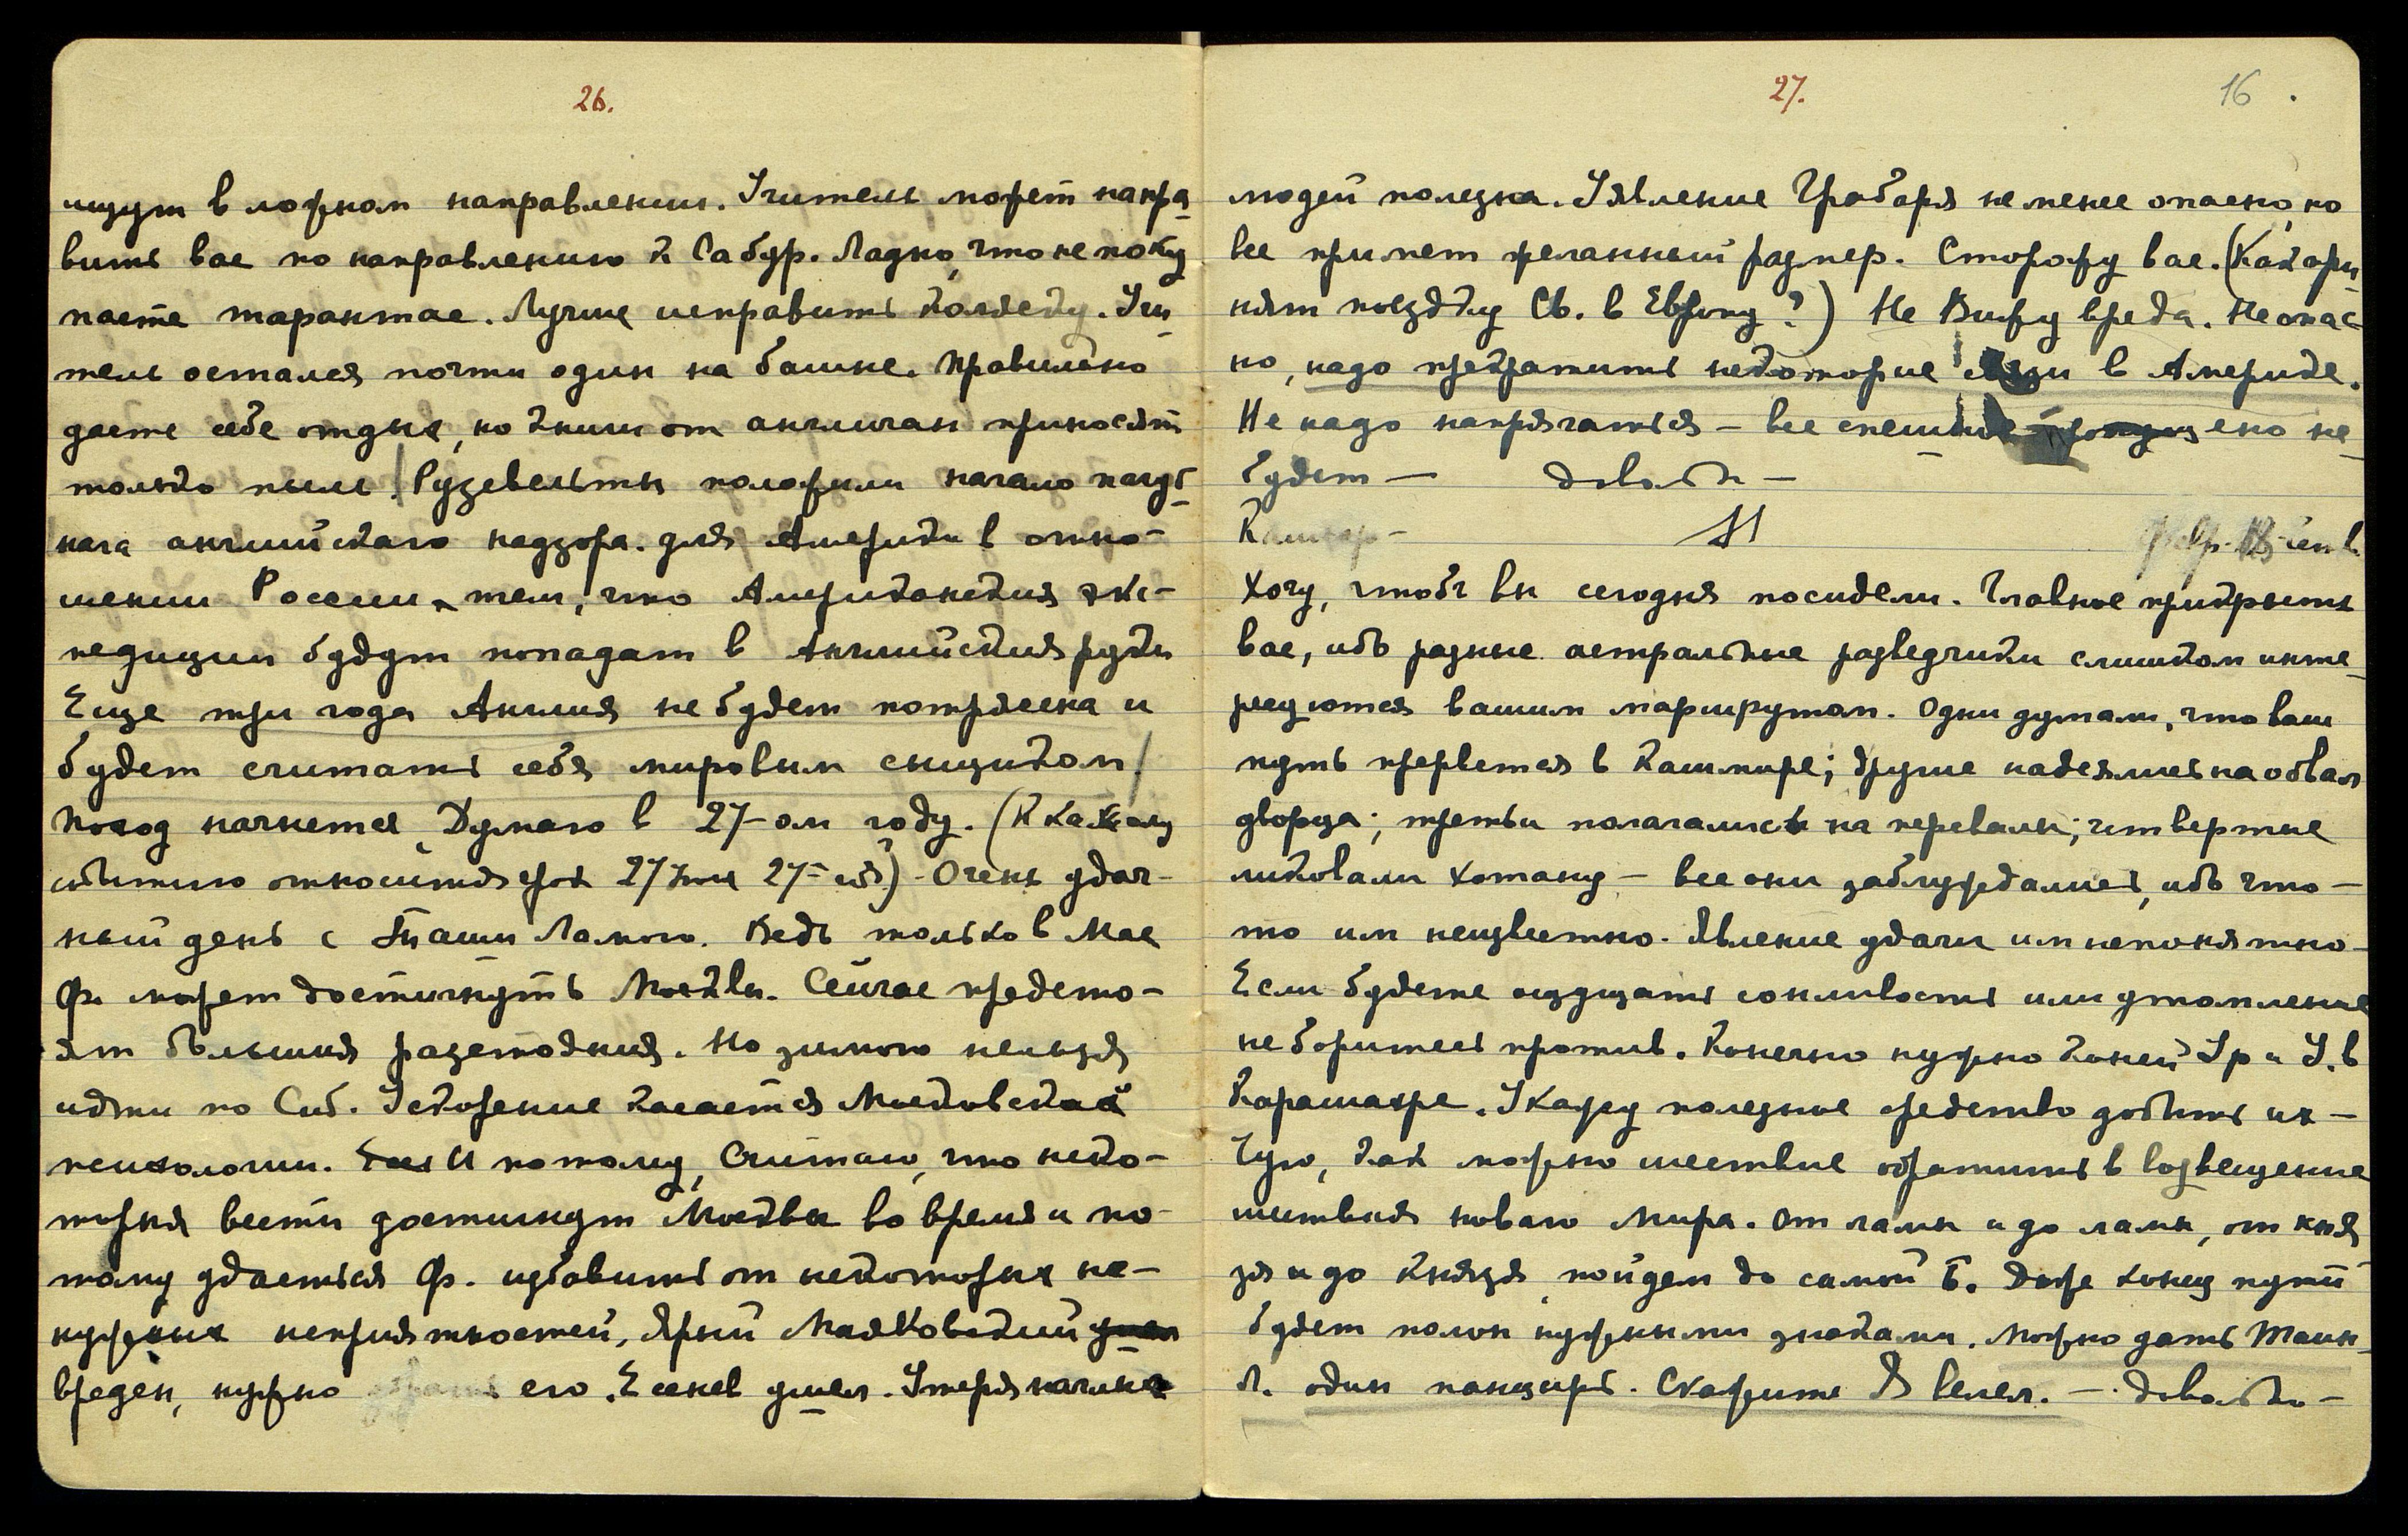 26.
ищут в ложном направлении. Учитель может напра
вить вас по направлению к Сабур. Ладно, что не поку
паете тарантас. Лучше исправить коляску. Учи
тель остался почти один на башне. Правильно
даете себе отдых, но книги от англичан приносят
только пыль / Рузевельты положили начало пагуб
наго английскаго надзора для Америки в отно-
шении России, тем, что Американския экс-
педиции будут попадать в Английския руки
Еще три года Англия не будет потрясена и
будет считать себя мировым сыщиком /
Поход начнется, Думаю в 27-ом году. (К какому
событию относится срок 27 Июня 27-
Очень удач-
ный день с Таши Ламою. Ведь только в Мае
Ф. может достигнуть Москвы. Сейчас предсто-
ят большия разстояния. Но зимою нельзя
идти по Сиб. Ускорение касается Московской
психологии. И потому, Считаю, что неко-
торыя вести достигнут Москвы во время и по-
тому удастся Ф. избавить от некоторых не-
нужных неприятностей, Ярый Маяковский
вреден, нужно его. Есенев умен. Утеря начина
27.
16
людей полезна. Уявление Грабаря не менее опасно, но
все примет желанный размер. Сторожу вас. (Как при
нят поездку Св. в Европу?) Не Вижу вреда. Не опас
но, надо прекратить некоторые в Америке.
Не надо напрягаться – все ено не
будет – довольно –
Кашгар –
Хочу, чтобы вы сегодня посидели. Главное прикрыть
вас, ибо разные астральные разведчики слишком инте
ресуются вашим маршрутом. Одни думали, что ваш
путь прервется в Кашмире; другие надеялись на обвал
дворца; третьи полагались на перевалы; четвертые
ликовали Хотану – все они заблуждались, ибо что –
то им неизвестно. Явление удачи им непонятно –
Если будете ощущать сонливость или утомление
не боритесь против. Конечно нужно коней Ур и У. в
Карашахре. Укажу полезное средство добыть их –
Чую, как можно шествие обратить в возвещение
шествия новаго Мира. От ламы и до ламы, от кня
зя и до Князя, пойдем до самой Б. Даже конец пути
будет полон нужными знаками. Можно дать Таши
Л. один панцырь. Скажите Я велел. – довольно –